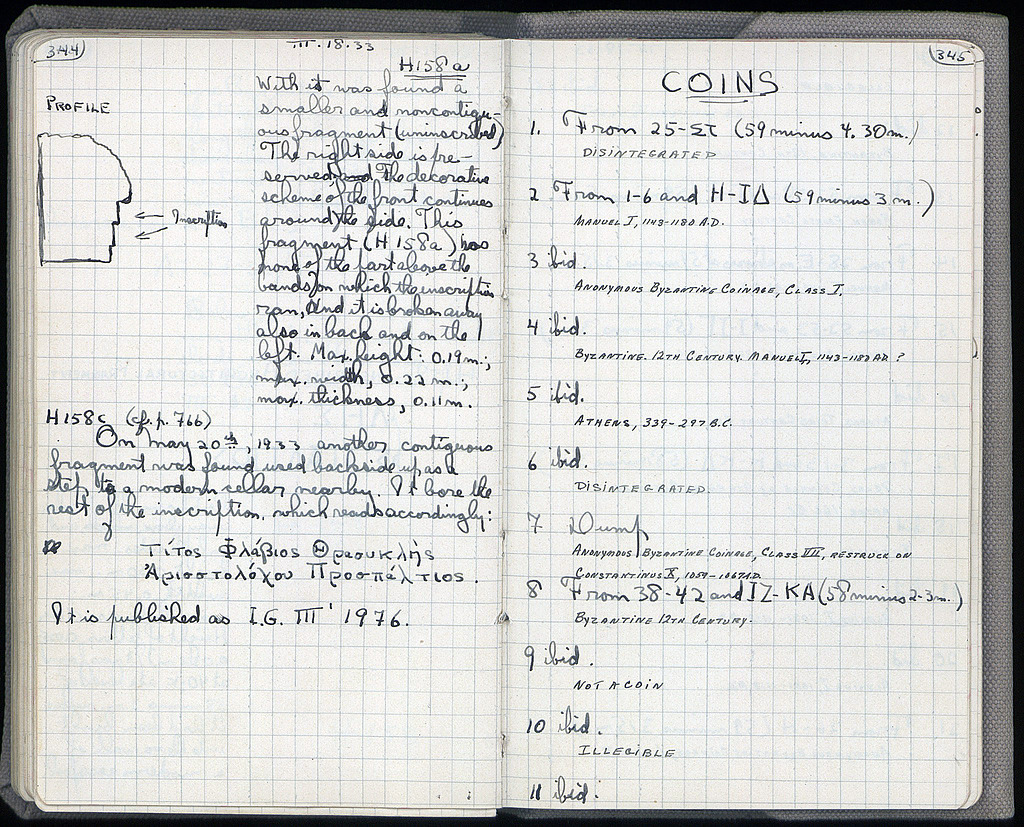 344
III.18.33
H158a
PROFILE
Inscription
With it was found a
smaller and noncontigu-
ous fragment (uninscribed)
The right side is pre-
served, and The decorative
scheme of the front continues
around the side. This
fragment (H 158a) has
none of the part above the
bands on which the inscription
ran, And it is broken away
also in back and on the
left. Max. height: 0.19 m.;
max. width, 0.22 m.;
max. thickness, 0.11 m.
H158c (cf. p. 766)
On May 20th, 1933 another contiguous
fragment was found used backside up as a
step to a modern cellar nearby. It bore the
rest of the inscription, which reads accordingly:
Τίτος Φλάβιος Θρασυκλῆς
Ἀριστολόχου Προσπάλτιος.
It is published as I.G. III¹ 1976.
345
COINS
1. From 25-ΣΤ (59 minus 4.30 m.)
DISINTEGRATED
2 From 1-6 and H-ΙΔ (59 minus 3 m.)
MANUEL I, 1143-1180 A.D.
3 ibid.
ANONYMOUS BYZANTINE COINAGE, CLASS I.
4 ibid.
BYZANTINE. 12TH CENTURY. MANUEL I, 1143-1180 AD ?
5 ibid.
ATHENS, 339-297 B.C.
6 ibid.
DISINTEGRATED.
7 Dump
ANONYMOUS BYZANTINE COINAGE, CLASS VII, RESTRUCK ON
CONSTANTINUS X, 1059-1067 A.D.
8 From 38-42 and ΙΖ-ΚΑ (58 minus 2-3 m.)
BYZANTINE 12TH CENTURY.
9 ibid.
NOT A COIN
10 ibid.
ILLEGIBLE
11 ibid: